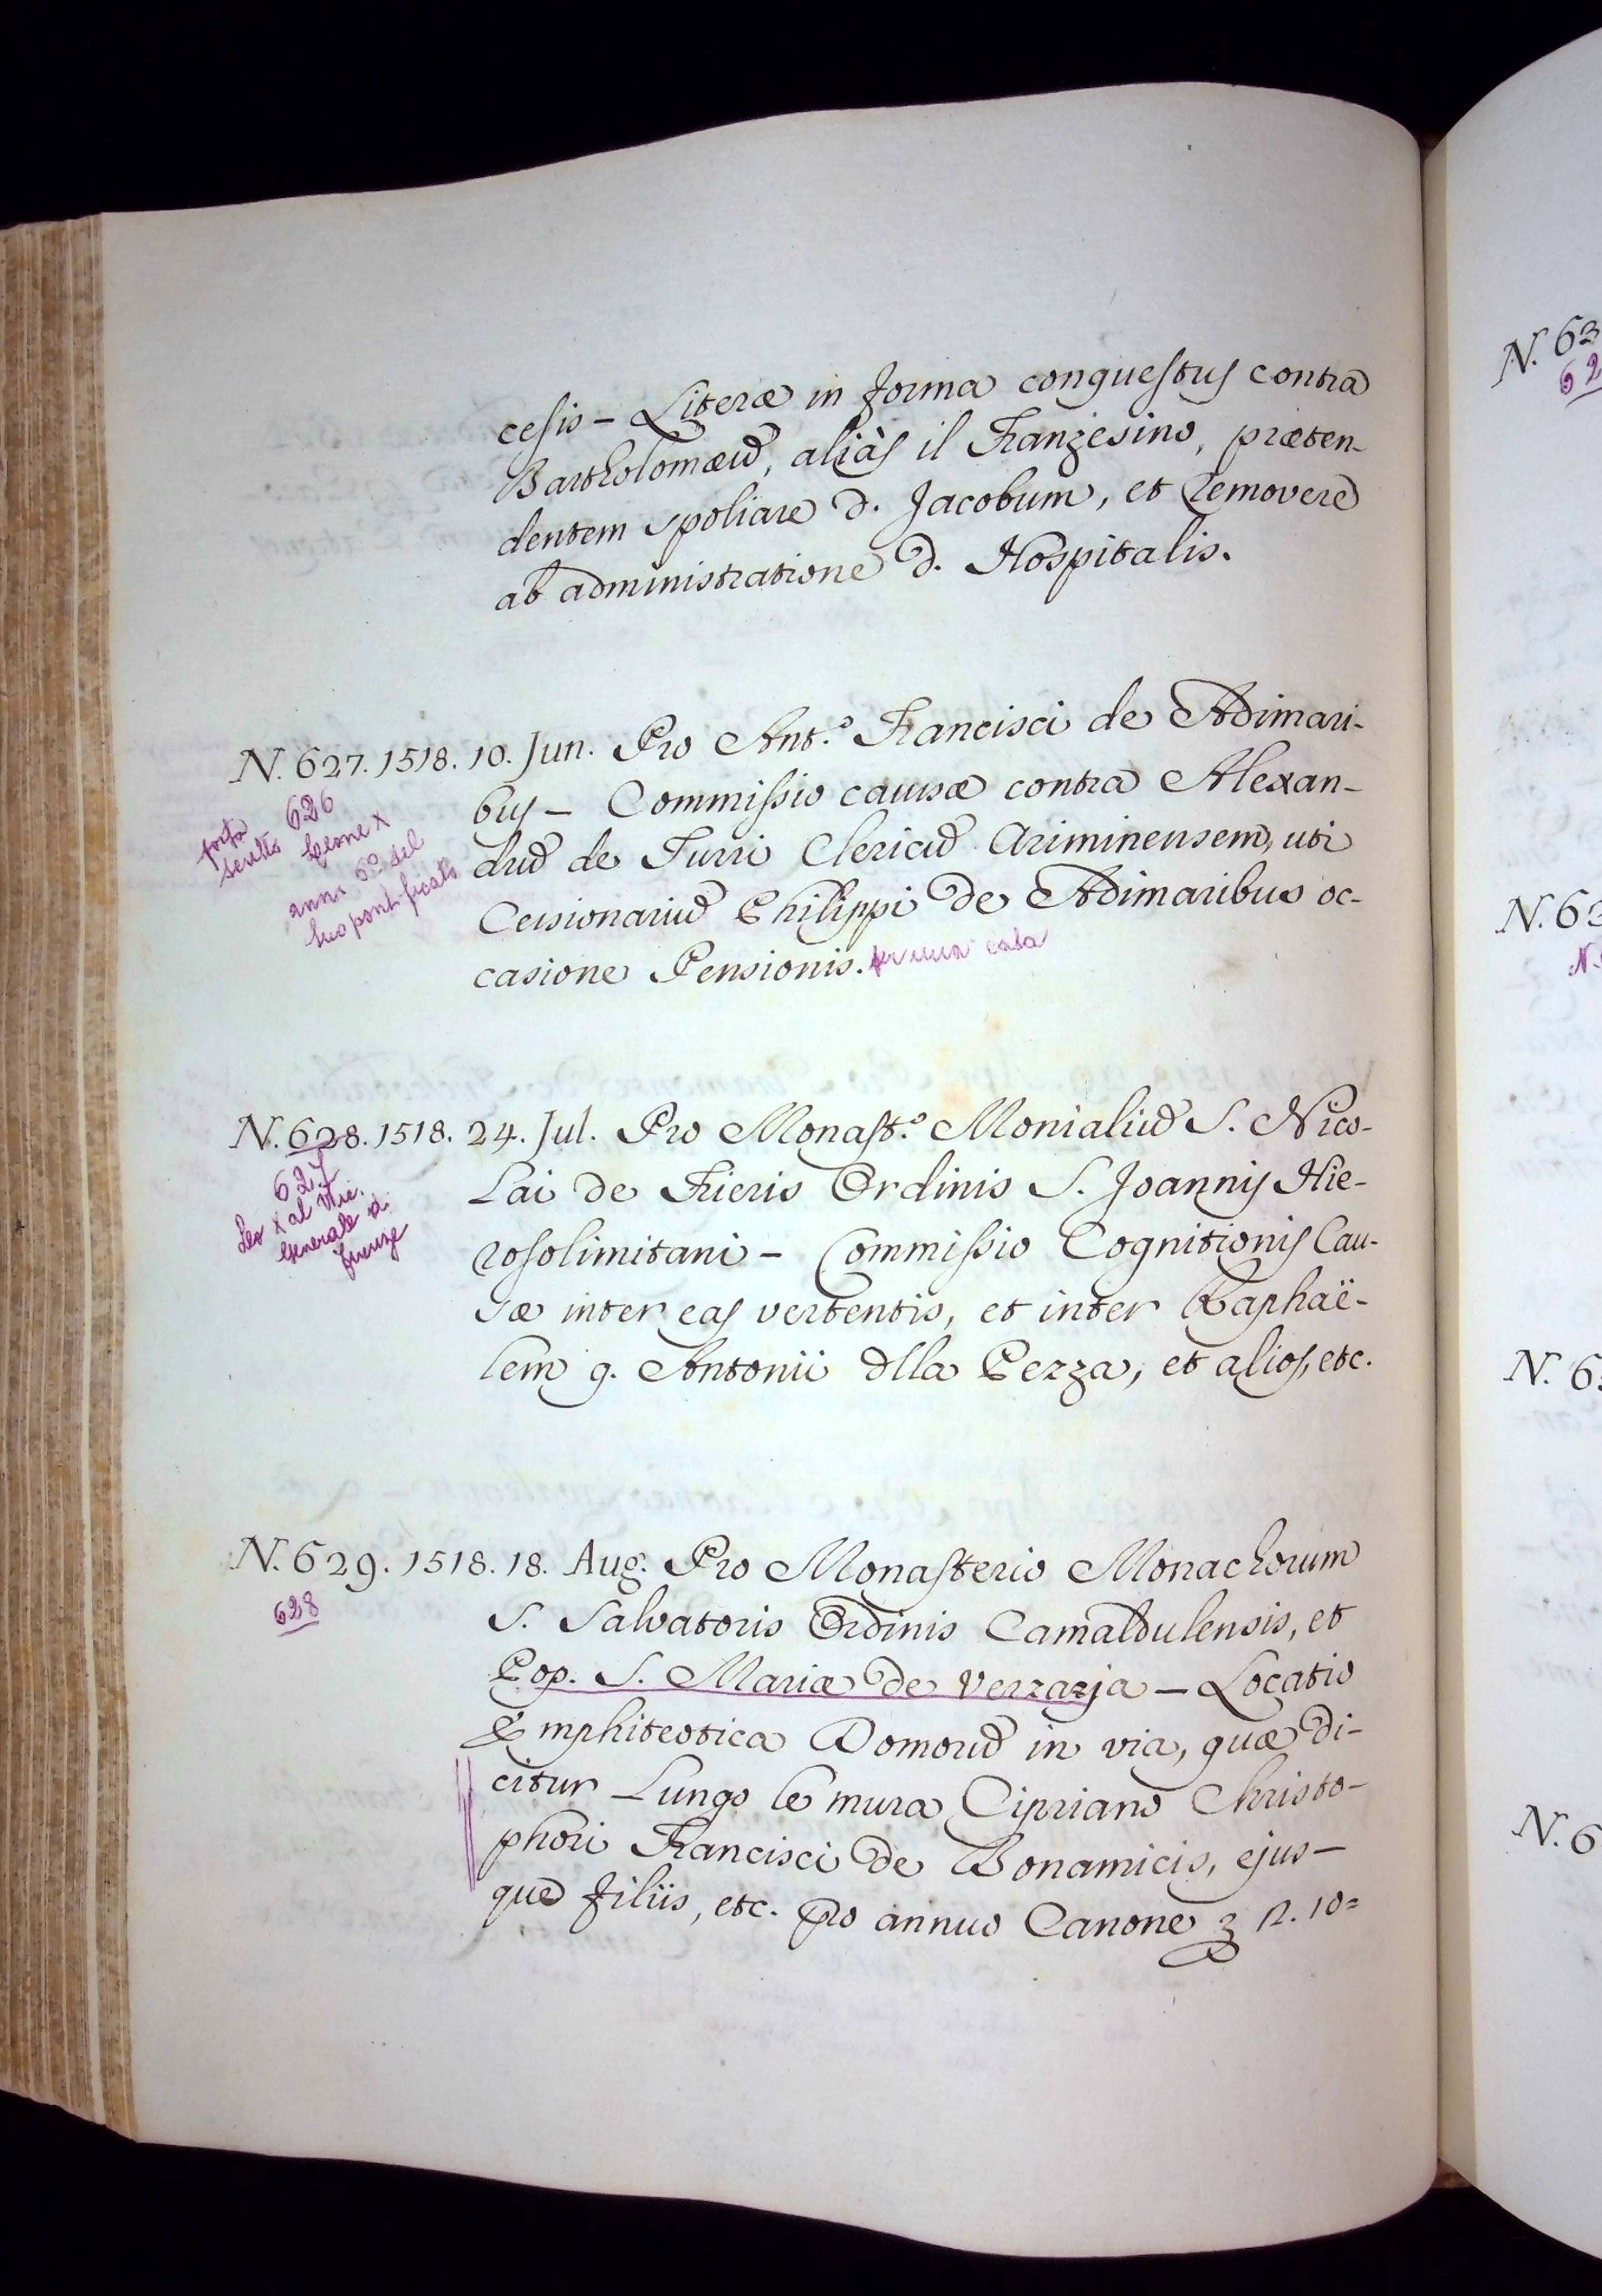 cesis – Literæ in forma conquestus contra
Bartholomæũ, aliàs il Franzesino, præten-
dentem spoliare d. Jacobum, et removere
ab administratione d. Hospitalis.
N. 627. 1518. 10. Jun. Pro Ant.º Francisci de Adimari-
bus – Commissio causæ contra Alexan-
drũ de Turri Clericũ Ariminensem, uti
Cessionariũ Philippi de Adimaribus oc-
casione Pensionis.
porta 626
scritto Leone X
anno 6º del
suo pontificato
N. 628. 1518. 24. Jul. Pro Monast.º Monialiũ S. Nico-
lai de Frieris Ordinis S. Joannis Hie-
rosolimitani – Commissio Cognitionis Cau-
sæ inter eas vertentis, et inter Raphaë-
lem q. Antonii dlla Pezza, et alios, etc.
627
Leo X al Vic.
Generale di
Firenze
N. 629. 1518. 18. Aug. Pro Monasterio Monachorum
S. Salvatoris Ordinis Camaldulensis, et
Pop. S. Mariæ de Verzaja – Locatio
Emphiteotica Domorũ in via, quæ di-
citur Lungo le mura Cipriano Christo-
phori Francisci de Bonamicis, ejus-
que filiis, etc. pro annuo Canone
628
N. 63
62
N. 63
N.
N. 6
N. 6